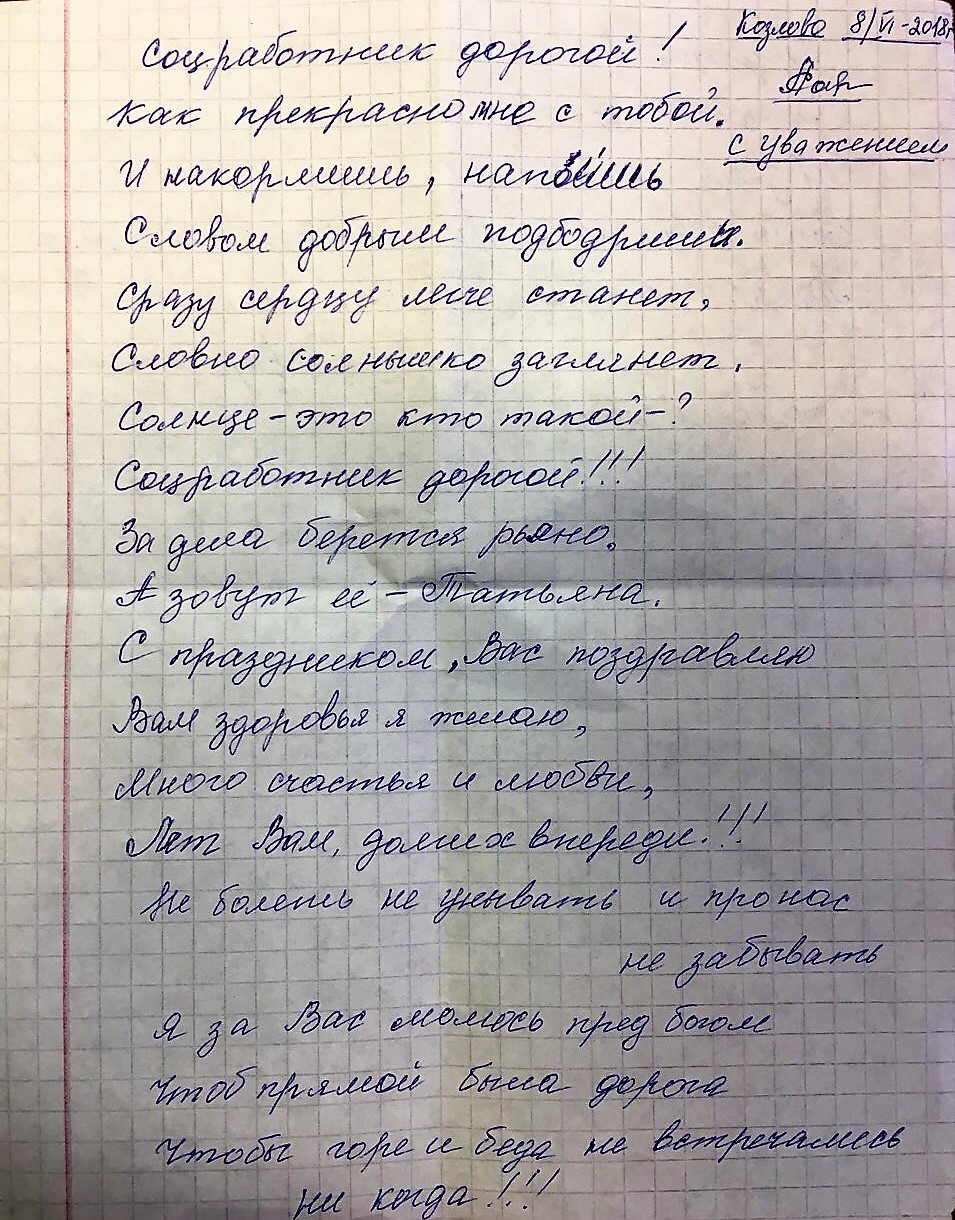 Козлова 8/VI-2018г
Соцработник дорогой!
Как прекрасно мне с тобой.
с уважением
И накормишь, напоишь
Словом добрым подбодришь.
Сразу сердцу легче станет,
Словно солнышко заглянет.
Солнце - это кто такой-?
Соцработник дорогой!!!
За дела берется рьяно.
А зовут её - Татьяна.
С праздником, Вас поздравляю
Вам здоровья я желаю,
Много счастья и любви,
Лет Вам, долгих впереди!!!
Не болеть не унывать и про нас
не забывать
Я за Вас молюсь пред богом
Чтоб прямой была дорога
Чтобы горе и беда не встречались
ни когда!!!